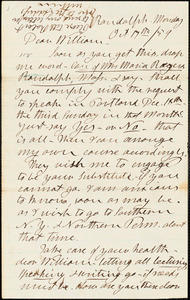 Randolph, Monday
Oct 17th / 59
Dear William:
Soon as you get this, drop
me word - Care of Mrs Maria Rogers
Randolph, Mass. I say. Shall
you comply with the request
to speak in Portland Dec. 18th
the third Sunday in that Month?
Just say Yes - or No - that
is all - Then I can arrange
my own course accordingly.
They wish me to engage
to be your Substitute, if you
cannot go. I am anxious
to know, soon as may be
as I wish to go to Southern
N. Y. & Northern Penn. about
that time.
Take care of your health -
dear William - letting all lecturing
speaking & writing go - if needs
must be. How are you then dear